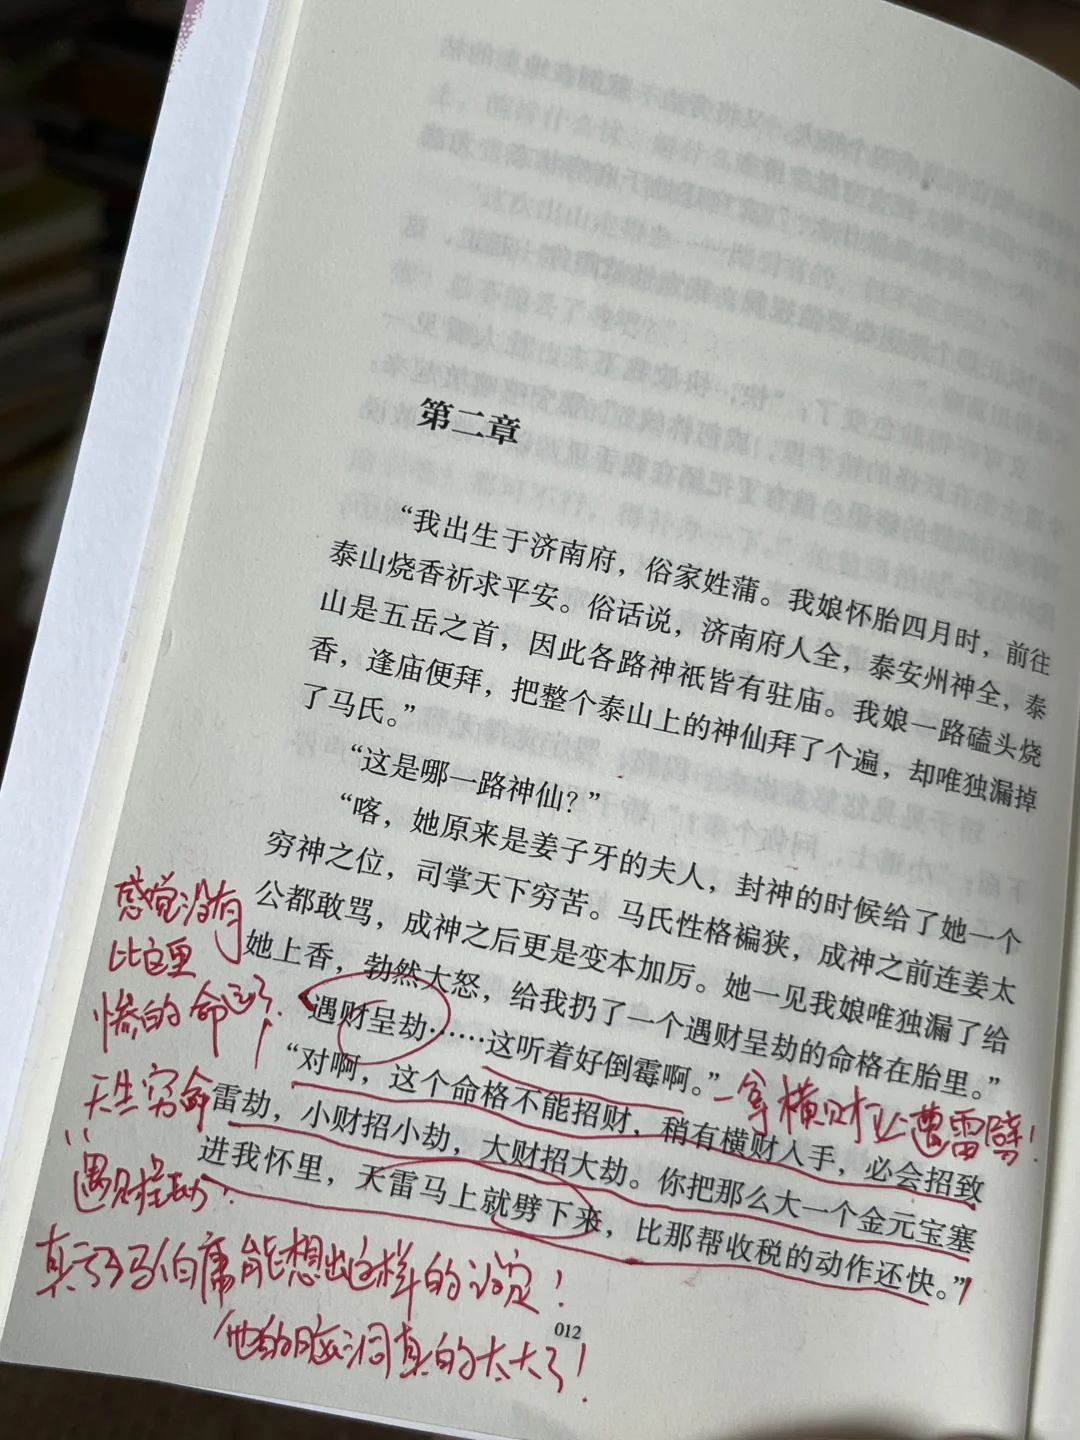 第二章
“我出生于济南府，俗家姓蒲。我娘怀胎四月时，前往
泰山烧香祈求平安。俗话说，济南府人全，泰安州神全，泰
山是五岳之首，因此各路神祇皆有驻庙。我娘一路磕头烧
香，逢庙便拜，把整个泰山上的神仙拜了个遍，却唯独漏掉
了马氏。”
“这是哪一路神仙？”
“喀，她原来是姜子牙的夫人，封神的时候给了她一个
穷神之位，司掌天下穷苦。马氏性格褊狭，成神之前连姜太
公都敢骂，成神之后更是变本加厉。她一见我娘唯独漏了给
她上香，勃然大怒，给我扔了一个遇财呈劫的命格在胎里。”
“遇财呈劫……这听着好倒霉啊。”
“对啊，这个命格不能招财，稍有横财入手，必会招致
雷劫，小财招小劫，大财招大劫。你把那么大一个金元宝塞
进我怀里，天雷马上就劈下来，比那帮收税的动作还快。”
感觉没有
比这更
惨的命运了！
天生穷命
“遇财呈劫”！
一拿横财让遭雷劈！
真亏马伯庸能想出这样的设定！
他的脑洞真的太大了！
012